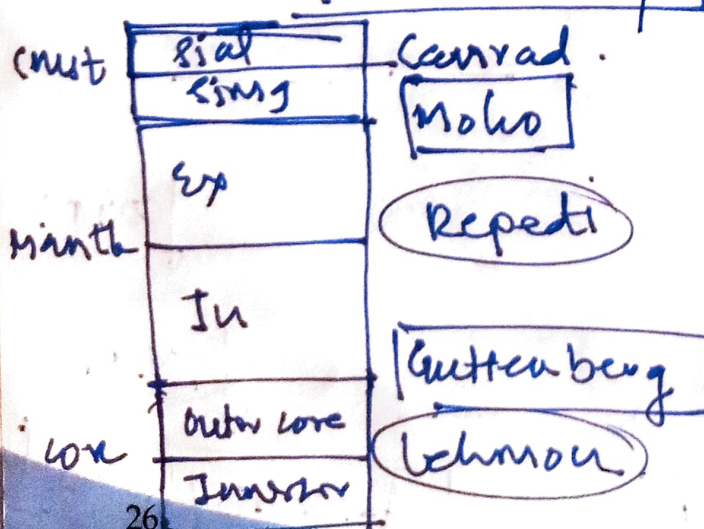 Crust sial Conrad
sima Moho
Ex
Mantle Repedti
In
Guttenberg
outer core
core Lehmon
Inner
26